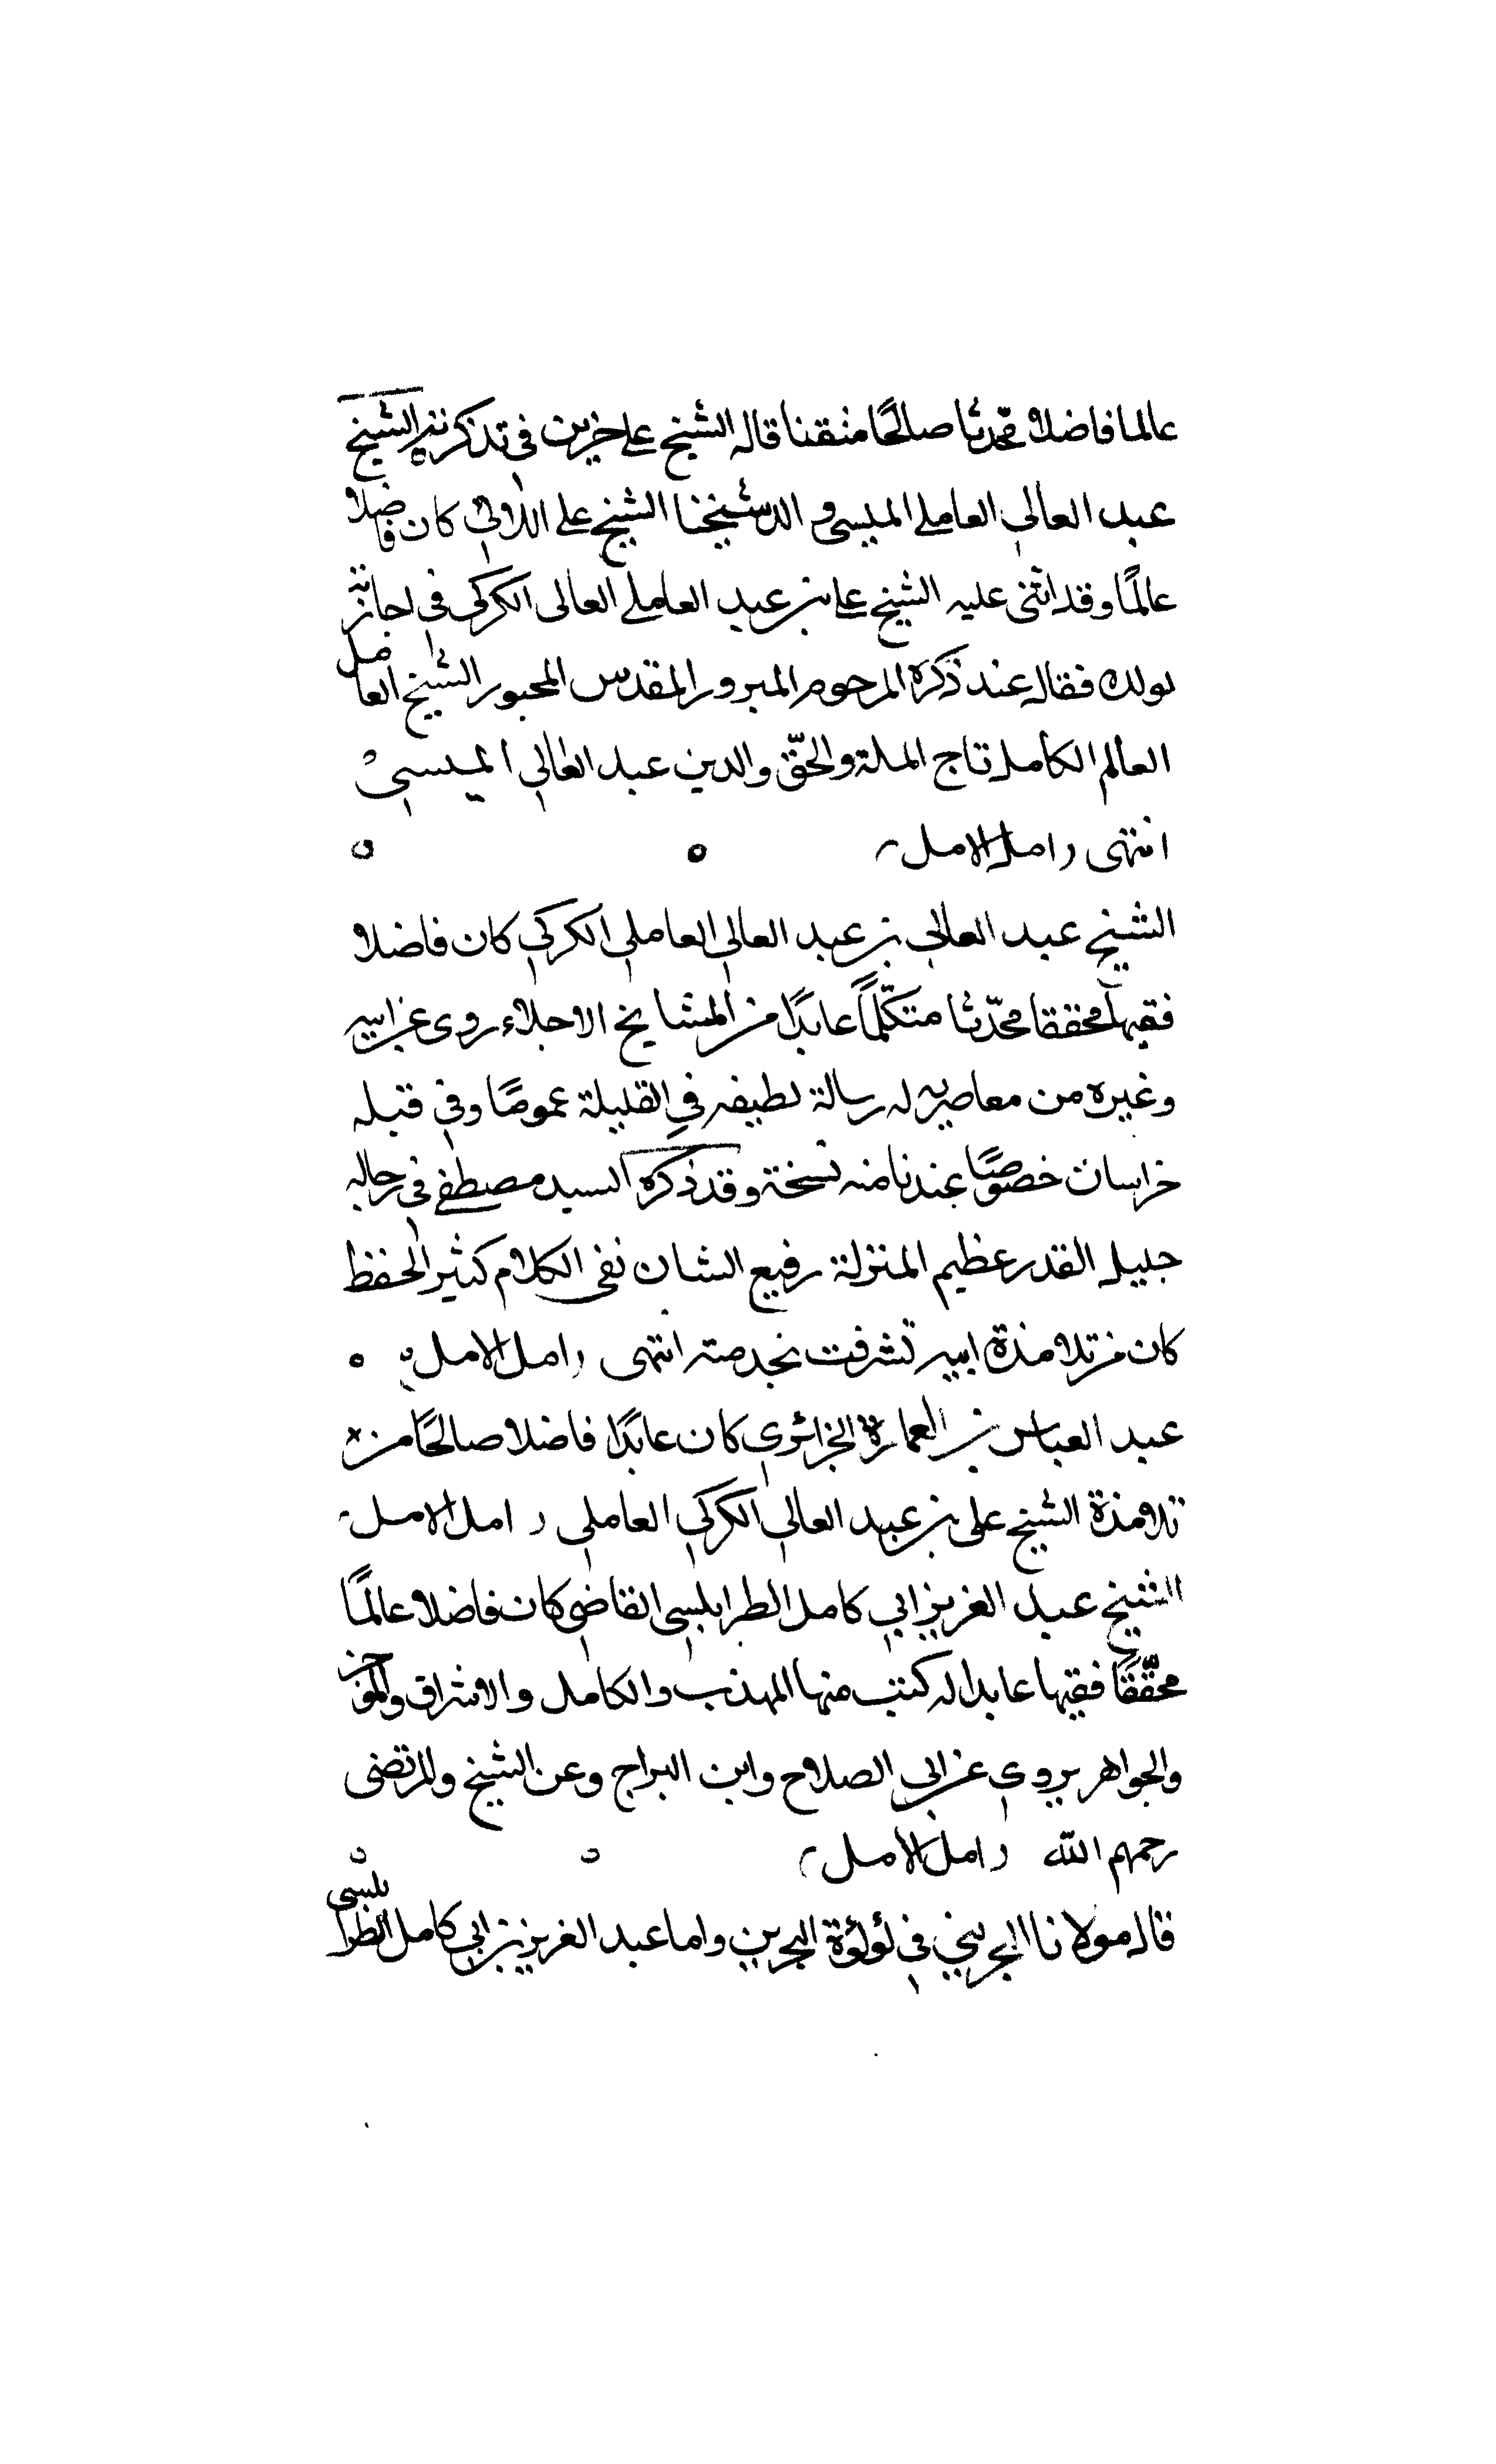 عالما فاضلا محمدثا صالحًا متقنا قاله الشيخ على حزين فى تذكرته الشيخ
عبد العالي العاملي الميسى والد شيخنا الشيخ على كان فاضلا
عالمًا وقد اثنى عليه الشيخ على بن عبد العاملے العالى الكركى فى اجازته
لولده فقال عند ذكره المرحوم المبرور المقدس المحبور الشيخ الفاضل
العالم الكامل تاج الملة والحقّ والدين عبد العالي الميسي
انتهى ر امل الامل
الشيخ عبد العالي بن عبد العالي العاملي الكركي كان فاضلا
فقيها محققا محدّثا متكلّمًا عابدًا من المشايخ الاجلاء روى عن ابيه
وغيره من معاصريه له رسالة لطيفه في القليلة عمومًا وفي قبله
خراسان خصوصًا عندنا منه نسخة وقد ذكره السيد مصطفى فى رجاله
جليل القدر عظيم المنزلة رفيع الشان نفى الكلام كثير الحفظ
كان من تلامذة ابيه تشرفت بخدمته انتهى ر امل الامل
عبد العباس بن العمارة الجزائري كان عابدًا فاضلا صالحًا من
تلامذة الشيخ على بن عبد العالي الكركي العاملي ر امل الامل
الشيخ عبد العزيز ابي كامل الطرابلسي القاضي كان فاضلا عالمًا
محقّقًا فقيها عابدا له كتب منها المهذب والكامل والاشراق والموجز
والجواهر يروي عن ابي الصلاح وابن البراج وعن الشيخ والمرتضى
رحمهم الله ر امل الامل
قال مولانا البحريني في لؤلؤة البحرين واما عبد العزيز بن ابي كامل الطرابلسى